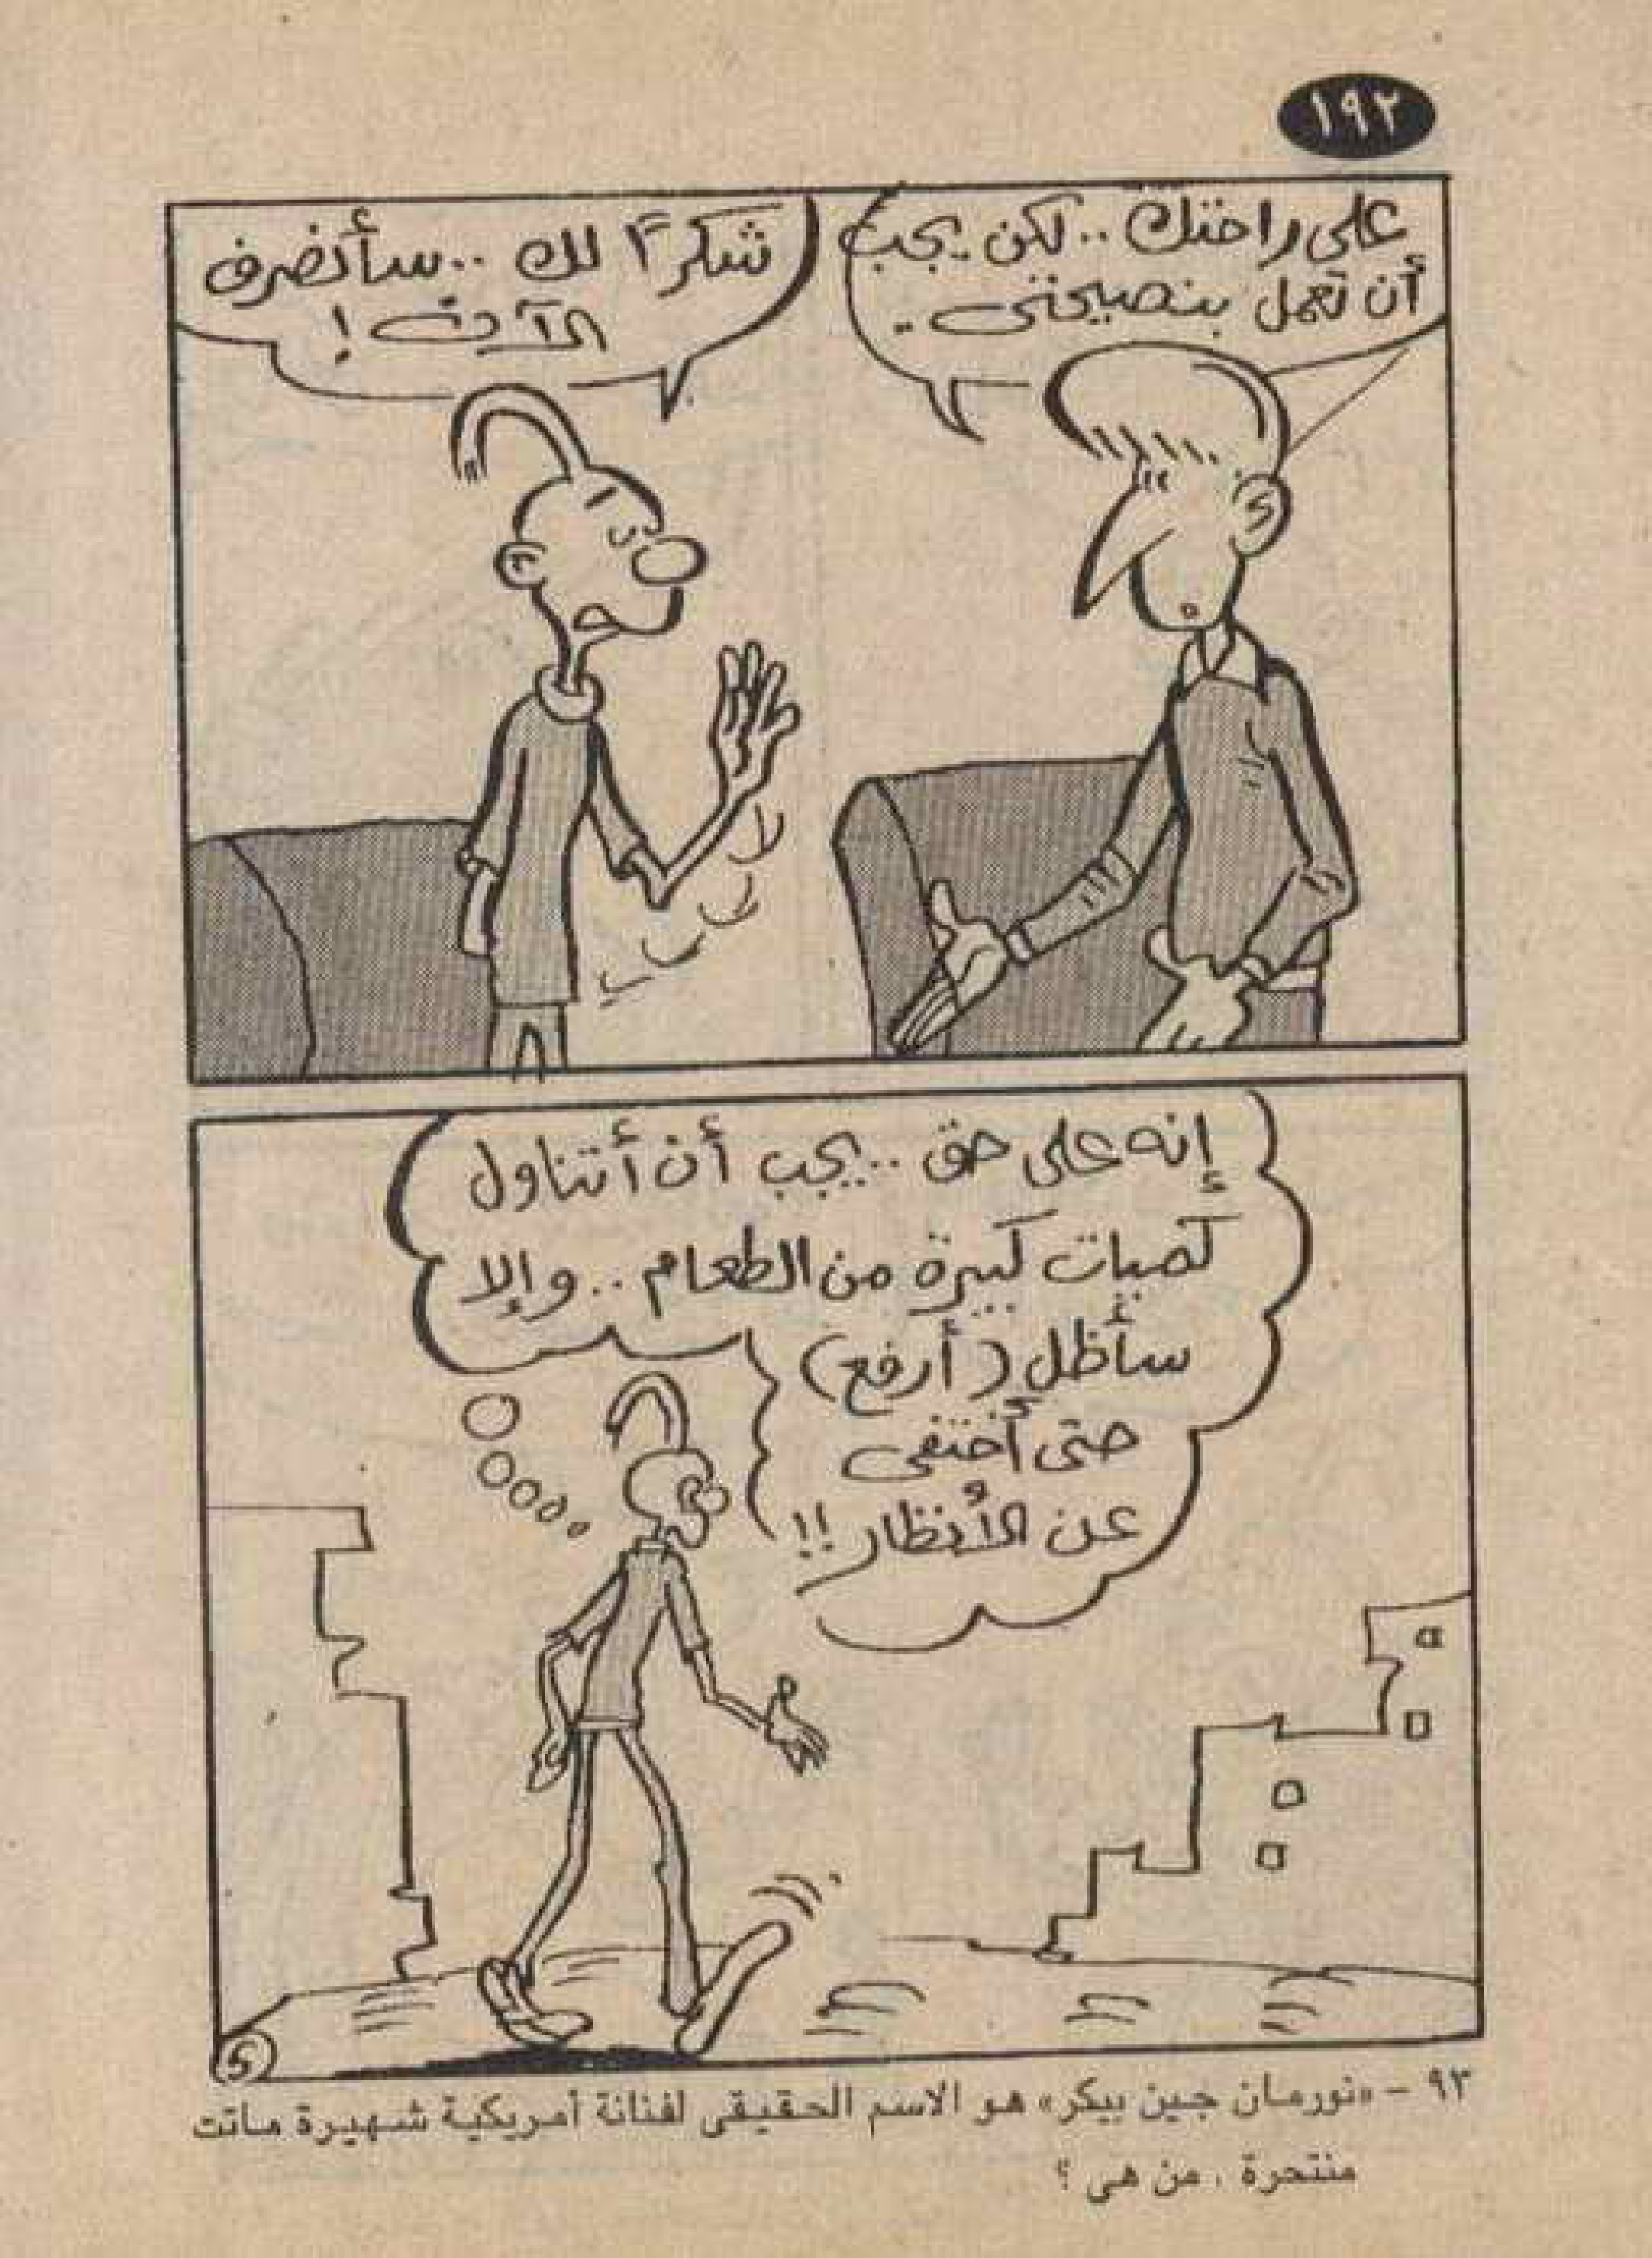 ١٩٢
على راحتك .. لكن يجب
أن تعمل بنصيحتى ..
شكرًا لك .. سأنصرف
الآن !
إنه على حق .. يجب أن أتناول
كميات كبيرة من الطعام .. وإلا
سأظل (أرفع)
حتى أختفى
عن الأنظار !!
5
٩٣ - «نورمان جين بيكر» هو الاسم الحقيقى لفنانة أمريكية شهيرة ماتت
منتحرة ، من هى ؟